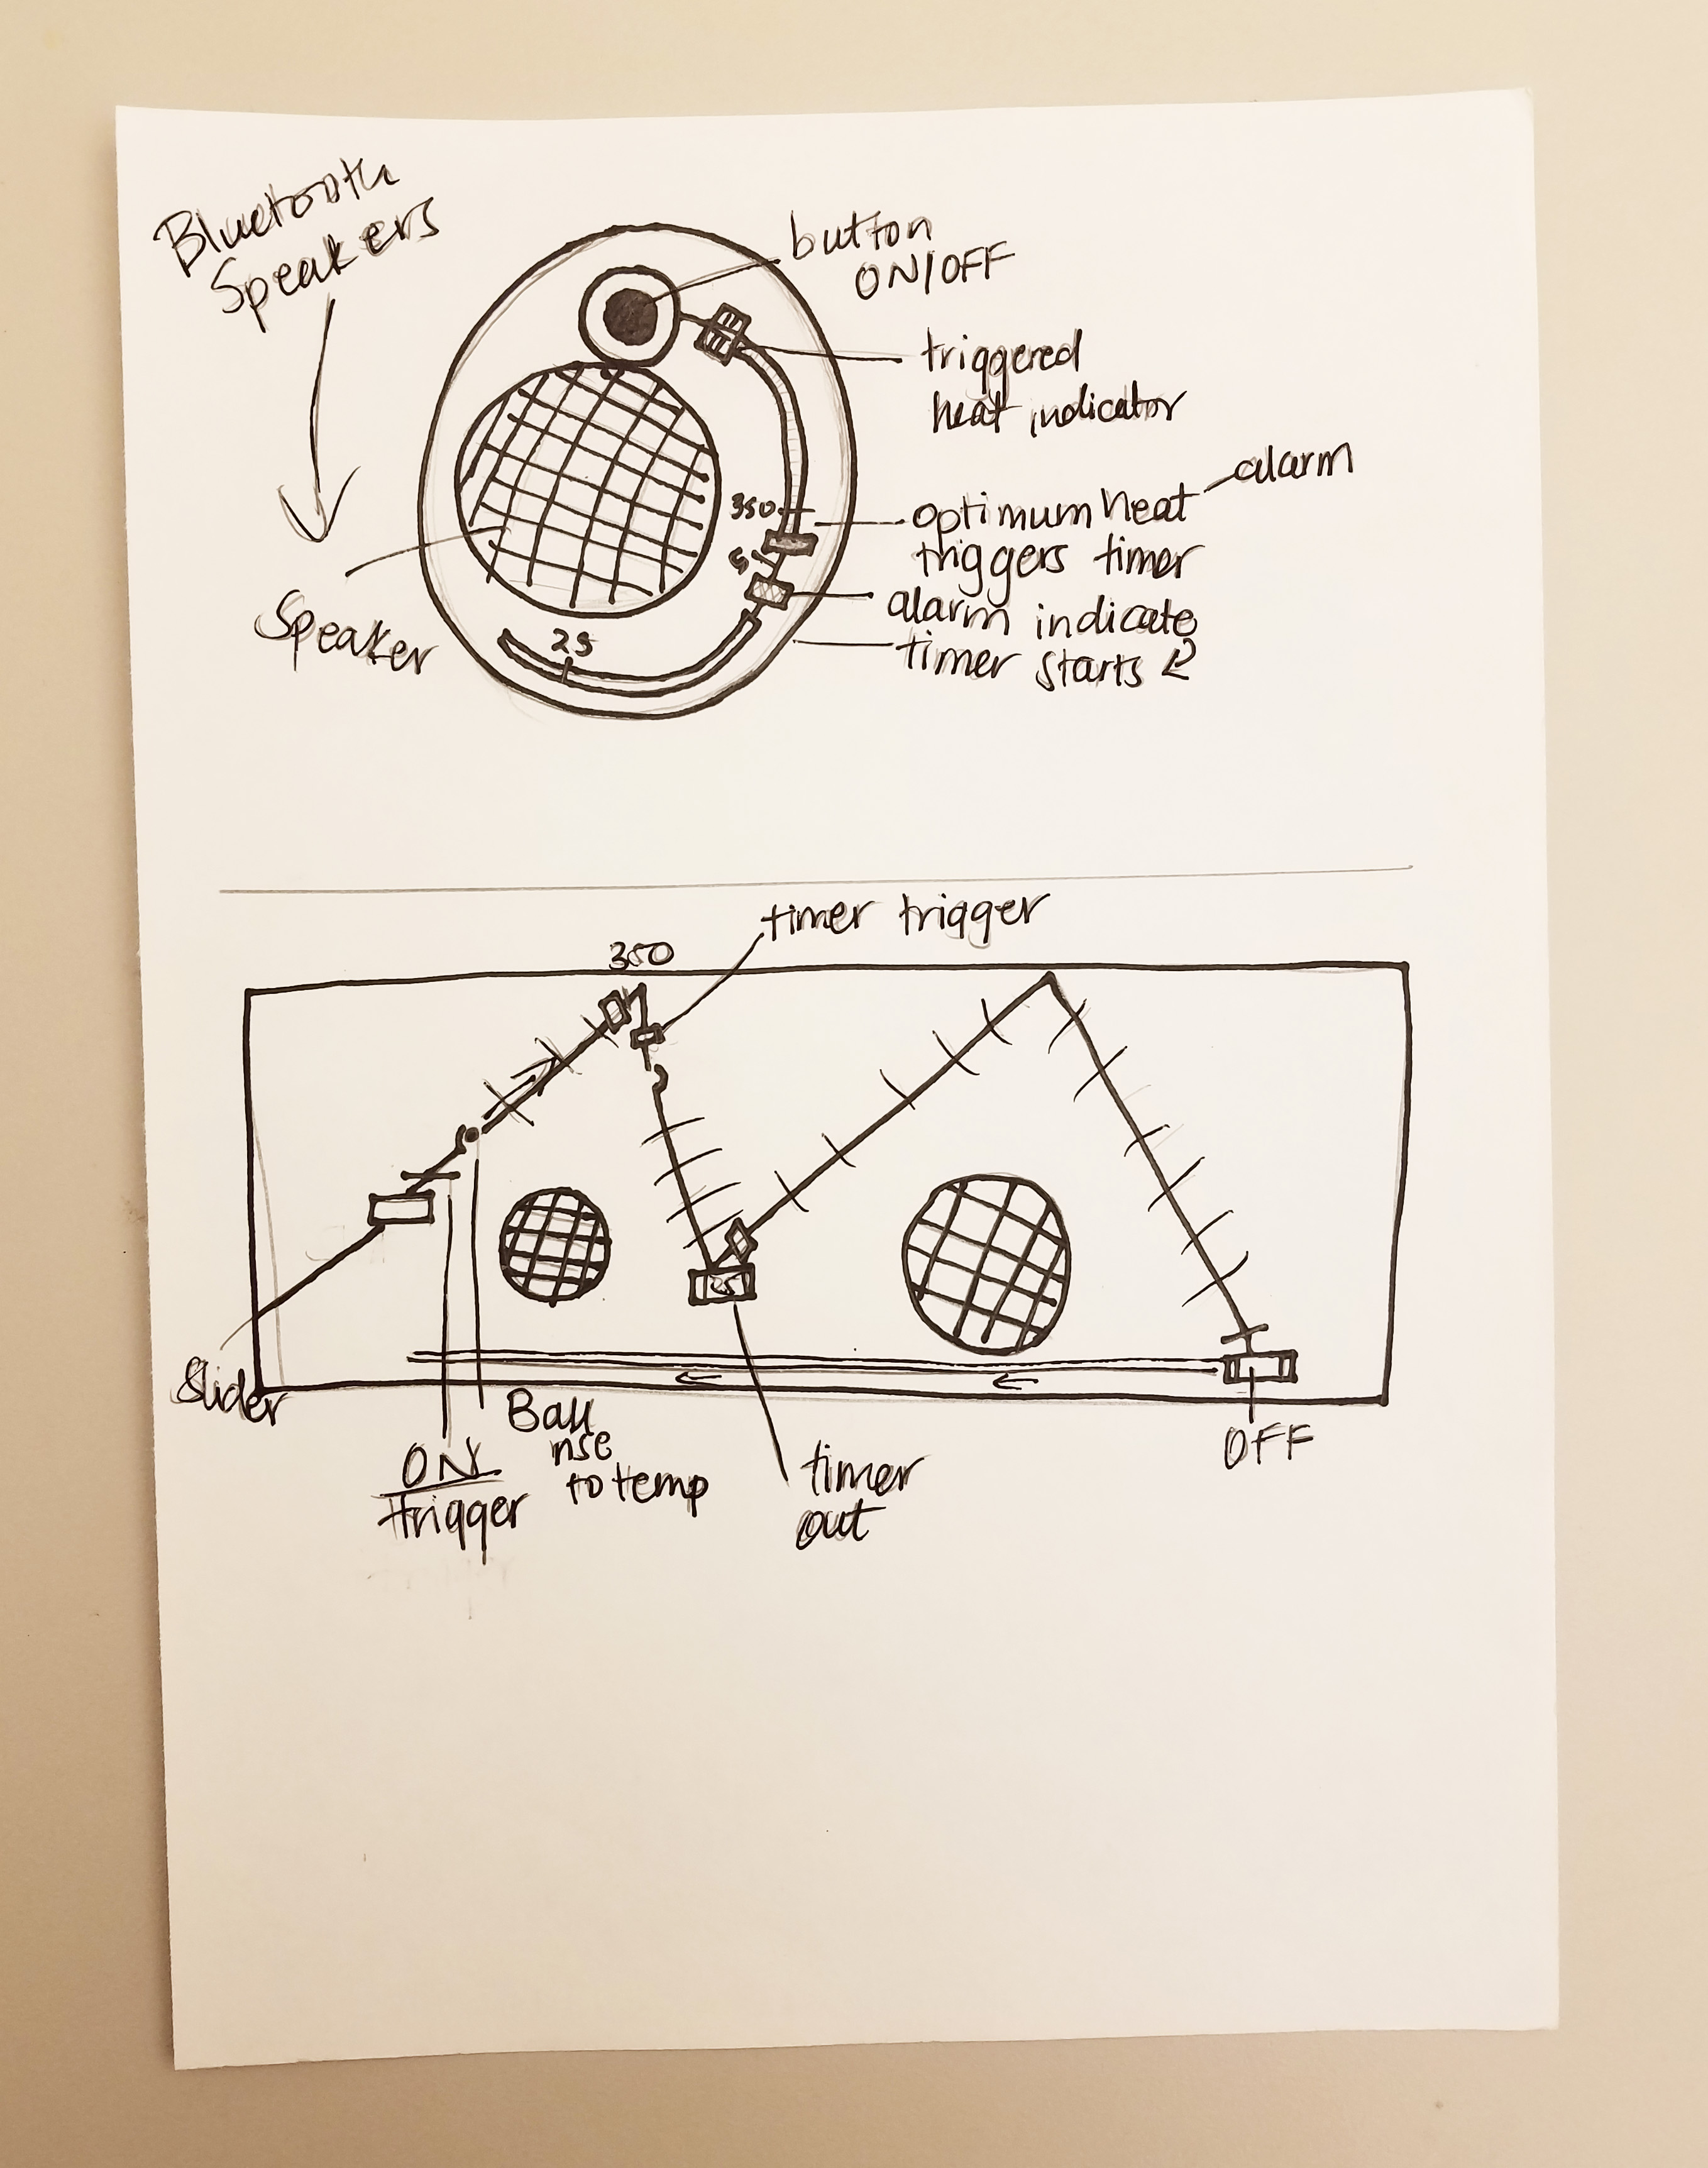 Bluetooth
Speakers
button
ON/OFF
triggered
heat indicator
alarm
350
optimum heat
triggers timer
5
alarm indicate
timer starts
Speaker
25
timer trigger
350
25
Slider
Ball
rise
to temp
ON
trigger
timer
out
OFF